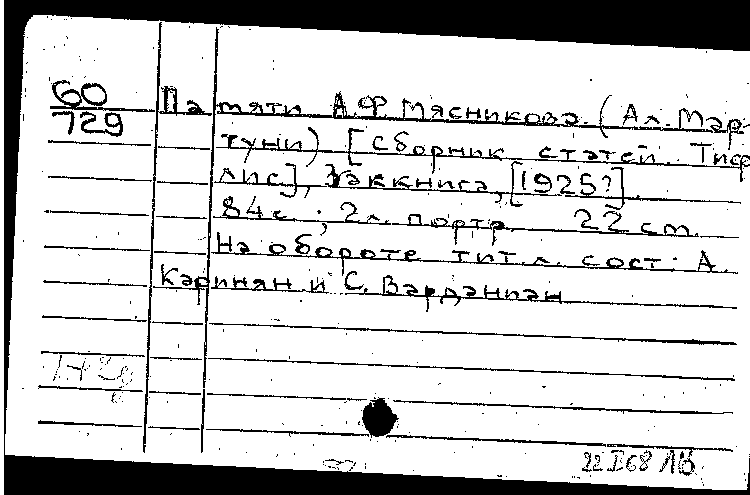 60
729
Памяти А.Ф. Мясникова. (Ал. Мар-
туни). [Сборник статей. Тиф-
лис], Заккнига, [1925?].
84 с.; 2 л. портр. 22 cm.
На обороте тит.л. сост: А.
Каринян и С. Вардангян
22 I 68